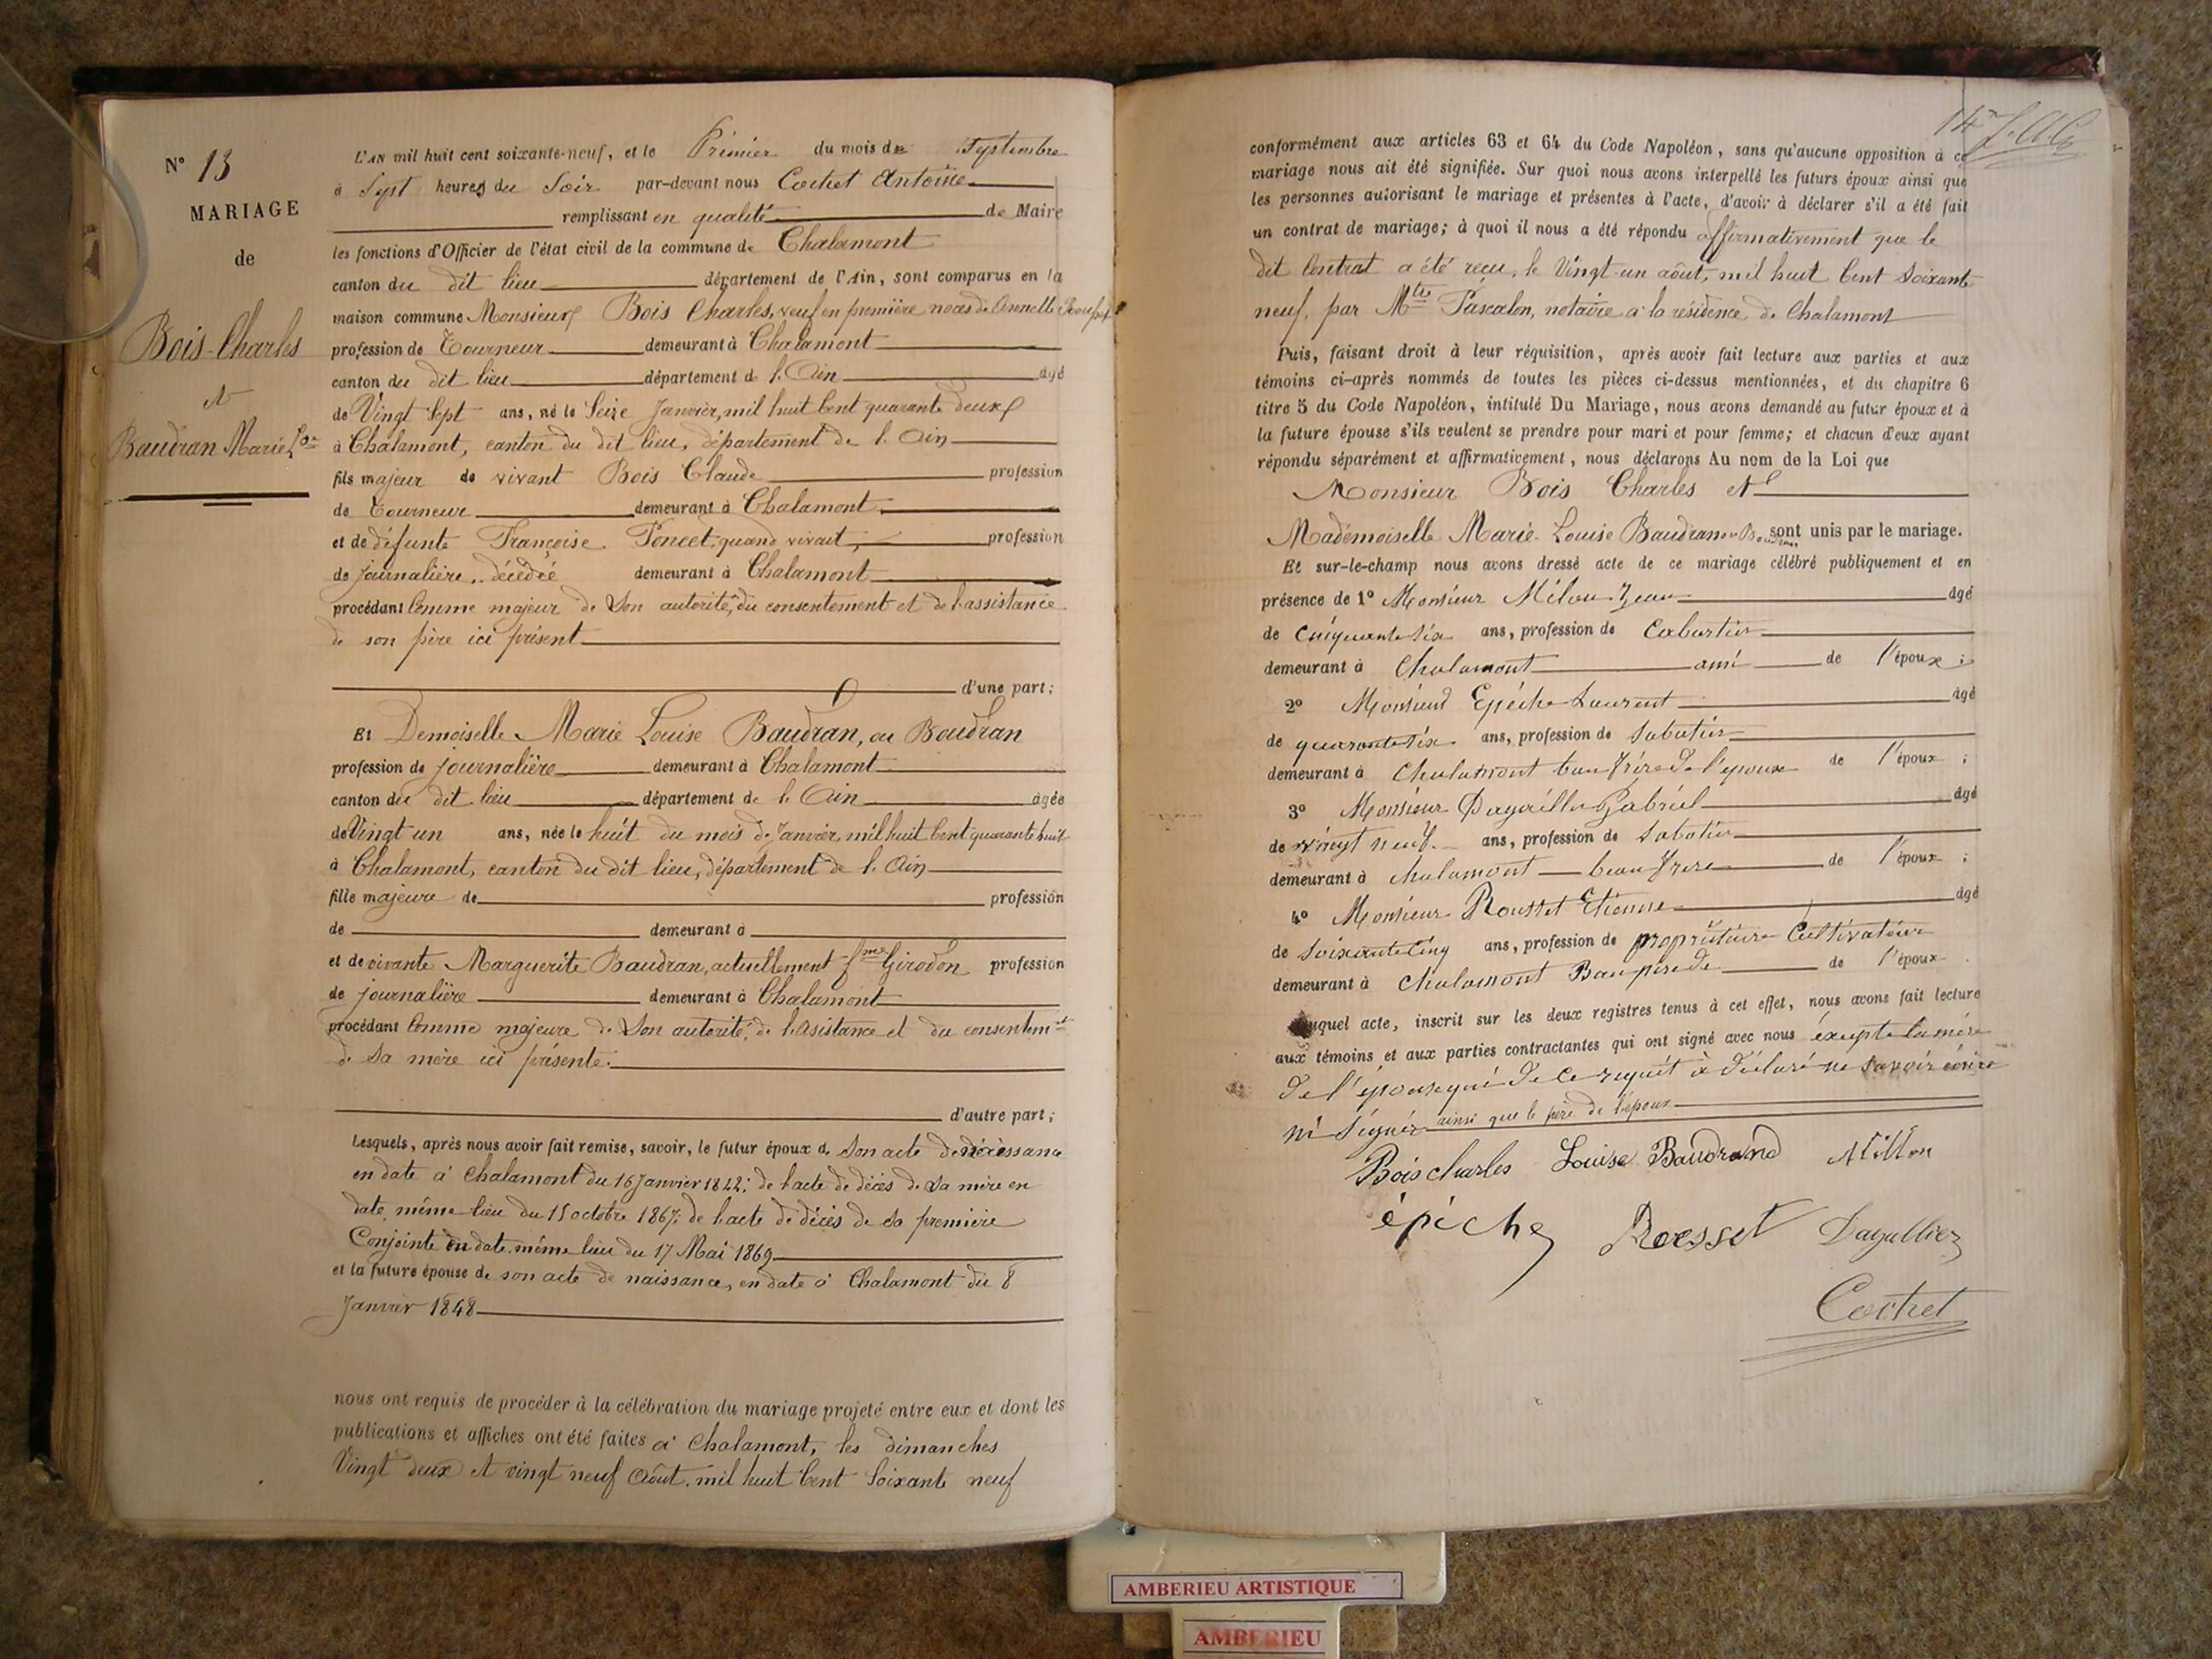 N° 13
MARIAGE
de
Bois Charles
et
Baudran Marie Lse
L'AN mil huit cent soixante-neuf, et le Primier du mois de Septembre
à Sept heures du Soir par-devant nous Cochet Antoine
remplissant en qualité de Maire
les fonctions d'Officier de l'état civil de la commune de Chalamont
canton du dit lieu département de l'Ain, sont comparus en la
maison commune Monsieur Bois Charles, veuf en première noces de Annette
profession de Tourneur demeurant à Chalamont
canton du dit lieu département de l'Ain âgé
de Vingt Sept ans, né le Seize Janvier, mil huit Cent quarante deux
à Chalamont, canton du dit lieu, département de l'Ain
fils majeur de vivant Bois Claude profession
de Tourneur demeurant à Chalamont
et de défunte Françoise Poncet, quand vivait, profession
de journalière, décédée demeurant à Chalamont
procédant Comme majeur de Son autorité, du consentement et de l'assistance
de son père ici présent
d'une part;
Et Demoiselle Marie Louise Baudran, ou Boudran
profession de journalière demeurant à Chalamont
canton du dit lieu département de l'Ain âgée
de Vingt un ans, née le huit du mois de Janvier, mil huit Cent quarante huit
à Chalamont, canton du dit lieu, département de l'Ain
fille majeure de profession
de demeurant à
et de vivante Marguerite Baudran, actuellement fme Girodon profession
de journalière demeurant à Chalamont
procédant Comme majeure de Son autorité, de l'asistance et du consentemt
de Sa mère ici présente.
d'autre part;
Lesquels, après nous avoir fait remise, savoir, le futur époux de Son acte de
en date à Chalamont du 16 Janvier 1842; de l'acte de décès de Sa mère en
date, même lieu du 15 octobre 1867; de l'acte de décès de sa première
Conjointe en date, même lieu du 17 Mai 1869
et la future épouse de son acte de naissance, en date à Chalamont du 8
Janvier 1848
nous ont requis de procéder à la célébration du mariage projeté entre eux et dont les
publications et affiches ont été faites à Chalamont, les dimanches
Vingt deux et vingt neuf Août, mil huit Cent Soixante neuf
conformément aux articles 63 et 64 du Code Napoléon, sans qu'aucune opposition à ce
mariage nous ait été signifiée. Sur quoi nous avons interpellé les futurs époux ainsi que
les personnes autorisant le mariage et présentes à l'acte, d'avoir à déclarer s'il a été fait
un contrat de mariage; à quoi il nous a été répondu affirmativement que le
dit Contrat a été reçu, le Vingt-un août, mil huit Cent Soixante
neuf, par Mtre Pascalon, notaire à la résidence de Chalamont
Puis, faisant droit à leur réquisition, après avoir fait lecture aux parties et aux
témoins ci-après nommés de toutes les pièces ci-dessus mentionnées, et du chapitre 6
titre 5 du Code Napoléon, intitulé Du Mariage, nous avons demandé au futur époux et à
la future épouse s'ils veulent se prendre pour mari et pour femme; et chacun d'eux ayant
répondu séparément et affirmativement, nous déclarons Au nom de la Loi que
Monsieur Bois Charles et
Mademoiselle Marie-Louise Baudran ou Boudran sont unis par le mariage.
Et sur-le-champ nous avons dressé acte de ce mariage célébré publiquement et en
présence de 1° Monsieur Milou Jean âgé
de Cinquante Six ans, profession de Cabartier
demeurant à Chalamont ami de l'époux;
2° Monsieur Epéche Laurent âgé
de quarante Six ans, profession de Sabotier
demeurant à Chalamont beau frère de l'époux de l'époux;
3° Monsieur Gabriel âgé
de vingt neuf ans, profession de Sabotier
demeurant à Chalamont beau frere de l'époux;
4° Monsieur Roussét Etienne âgé
de Soixante Cinq ans, profession de propriétaire Cultivateur
demeurant à Chalamont Beau père de de l'époux
uquel acte, inscrit sur les deux registres tenus à cet effet, nous avons fait lecture
aux témoins et aux parties contractantes qui ont signé avec nous éxepté la mère
de l'épouse qui de ce requit à déclaré ne savoir écrire
ni Signér ainsi que le père de l'époux
Bois charles Louise Baudrand Millon
épiche Rosset Dagallier
Cochet
AMBERIEU ARTISTIQUE
AMBERIEU